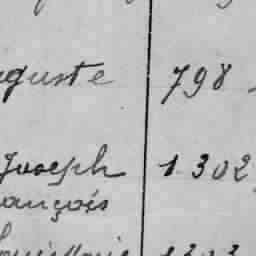 uguste 798
Joseph 1302
ançois